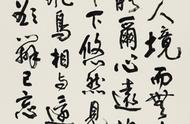 人境而無
能爾心遠
下悠然見
飛鳥相与還
欲辯已忘